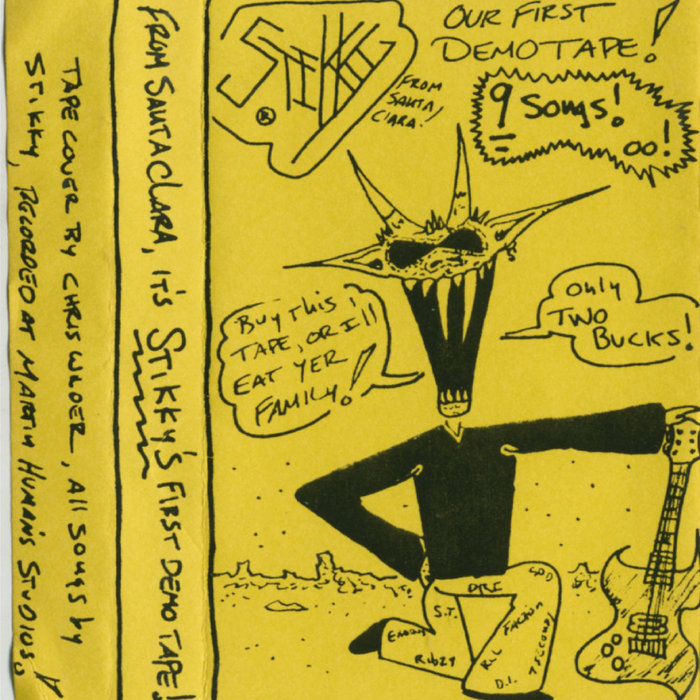 TAPE COVER BY CHRIS WILDER, All SONGS by
STIKKY, RECORDED AT MARTIN HUMAN'S STUDIOS.
FROM SANTA CLARA, IT'S STIKKY'S FIRST DEMO TAPE!
STIKKY
®
FROM
SANTA
CLARA!
OUR FIRST
DEMO TAPE!
9 Songs!
oo!
BUY THIS
TAPE, OR I'll
EAT YER
FAMILY!
Only
TWO
BUCKS!
DRI
S.T.
RKL
FACTION
D.I.
7 SECONDS